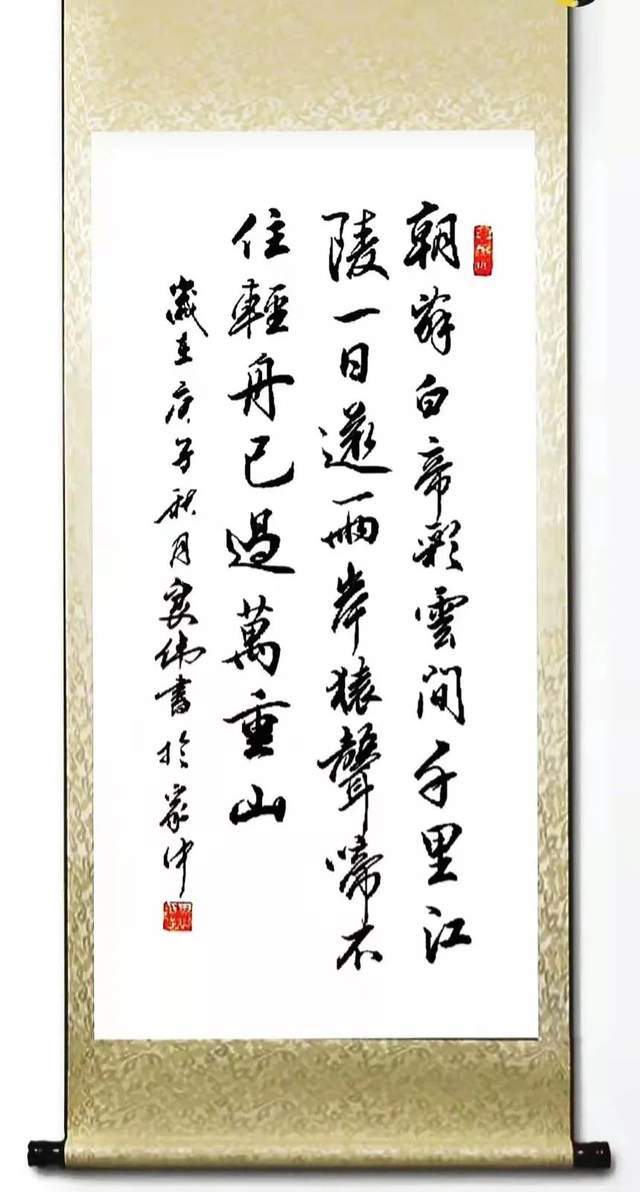 朝辭白帝彩雲間千里江
陵一日還兩岸猿聲啼不
住輕舟已過萬重山
歲在庚子秋月偉書於家中